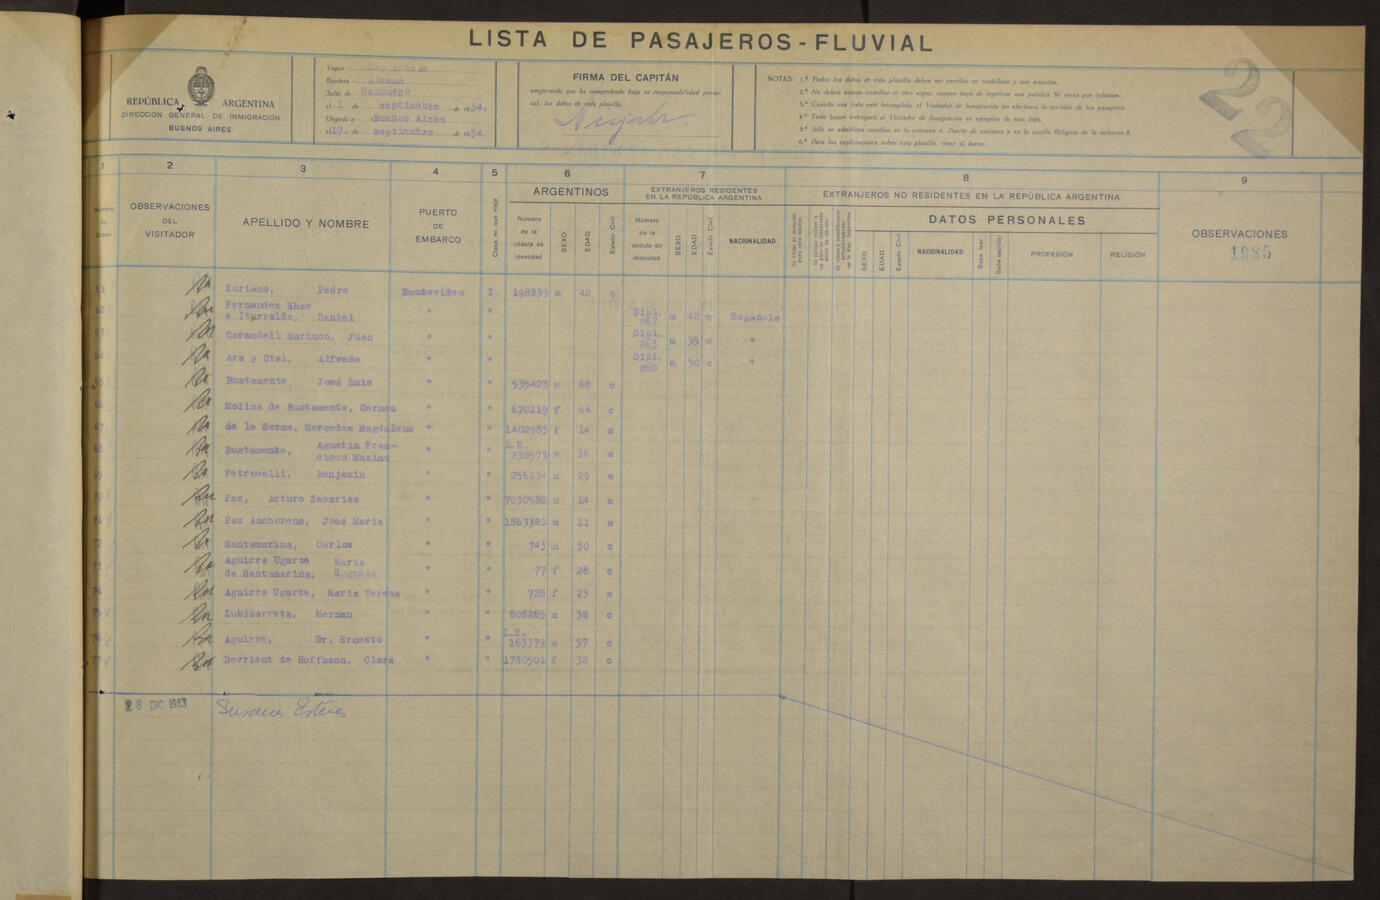 LISTA DE PASAJEROS - FLUVIAL
22
REPÚBLICA ARGENTINA
DIRECCIÓN GENERAL DE INMIGRACIÓN
BUENOS AIRES
Vapor
Bandera Aleman
Salió de Hamburgo
el 1 de septiembre de 1934.
Llegado a Buenos Aires
el 17. de septiembre de 1934.
FIRMA DEL CAPITÁN
asegurando que ha comprobado bajo su responsabilidad personal, los datos de esta planilla.
NOTAS: 1.ª Todos los datos de esta planilla deben ser escritos en castellano y con máquina.
2.ª No deben usarse comillas ni otro signo, aunque haya de repetirse una palabra 50 veces por columna.
3.ª Cuando una lista esté incompleta, el Visitador de Inmigración no efectuará la revisión de los pasajeros.
4.ª Todo buque entregará al Visitador de Inmigración un ejemplar de esta lista.
5.ª Sólo se admitirán comillas en la columna 4, Puerto de embarco y en la casilla Religión de la columna 8.
6.ª Para las explicaciones sobre esta planilla, véase al dorso.
1 2 3 4 5 6 7 8 9
Número de Orden
OBSERVACIONES DEL VISITADOR
APELLIDO Y NOMBRE
PUERTO DE EMBARCO
Clase en que viaja
ARGENTINOS
Número de la cédula de identidad
SEXO
EDAD
Estado Civil
EXTRANJEROS RESIDENTES EN LA REPÚBLICA ARGENTINA
Número de la cédula de identidad
SEXO
EDAD
Estado Civil
NACIONALIDAD
EXTRANJEROS NO RESIDENTES EN LA REPÚBLICA ARGENTINA
DATOS PERSONALES
SEXO
EDAD
Estado Civil
NACIONALIDAD
Sabe leer
Sabe escribir
PROFESIÓN
RELIGIÓN
OBSERVACIONES
1985
61 Soriano, Pedro Montevideo I. 198839 m 42 c
62 Fernandez Shaw
e Iturralde, Daniel " " Dipl. 267 m 22 c Española
63 Carandell Marinco, Juan " " Dipl. 263 m 35 c "
64 Ara y Otal, Alfredo " " Dipl. 260 m 50 c "
65 Bustamente José Luis " " 535423 m 68 c
66 Molina de Bustamente, Carmen " " 670219 f 64 c
67 de la Serna, Mercedes Magdalena " " 1402983 f 14 s
68 Bustamente, Agustin Francisco Maximo " " L.E. 230573 m 36 s
69 Petrocelli, Benjamin " " 256234 m 29 s
70 Paz, Arturo Zacarias " " 7030586 m 14 s
71 Paz Anchorena, José Maria " " 1863321 m 11 s
72 Santamarina, Carlos " " 743 m 30 c
73 Aguirre Ugarte de Santamarina, Maria Eugenia " " 77 f 28 c
74 Aguirre Ugarte, Maria Teresa " " 728 f 23 s
75 Zubizarreta, Hernan " " 808265 m 38 c
76 Aguirre, Dr. Ernesto " " L.E. 163379 m 57 c
77 Devrient de Hoffmann, Clara " " 1780501 f 32 c
28 DIC 1983